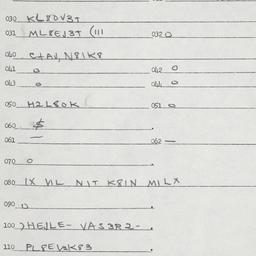 030 KL8DV3T
031 ML8EJ3T (III 032 O
040 C+AV, N8IK8
041 O 042 O
043 O 044 O
050 H2L8OK 051 O
060 $
061 — 062 —
070 O
080 IX VIL NIT K8IN MILX
090 O
100 ) HEJLE- VAS3R2-
110